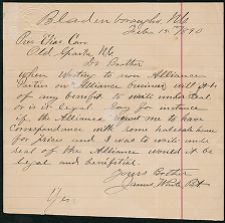 Bladenboro, NC
Feb 15 1890
Pres Elias Carr
Old Sparta NC
Dr Brother
When writing to non Alliance
Parties on Alliance business will it be
of any benefit to write under seal
or is it legal. Say for instance
if the Alliance me to have
Correspondence with some wholesale house
for prices and I was to write under
seal of the Alliance would it be
legal and benefitial.
Yours Brother
James White
Yes.